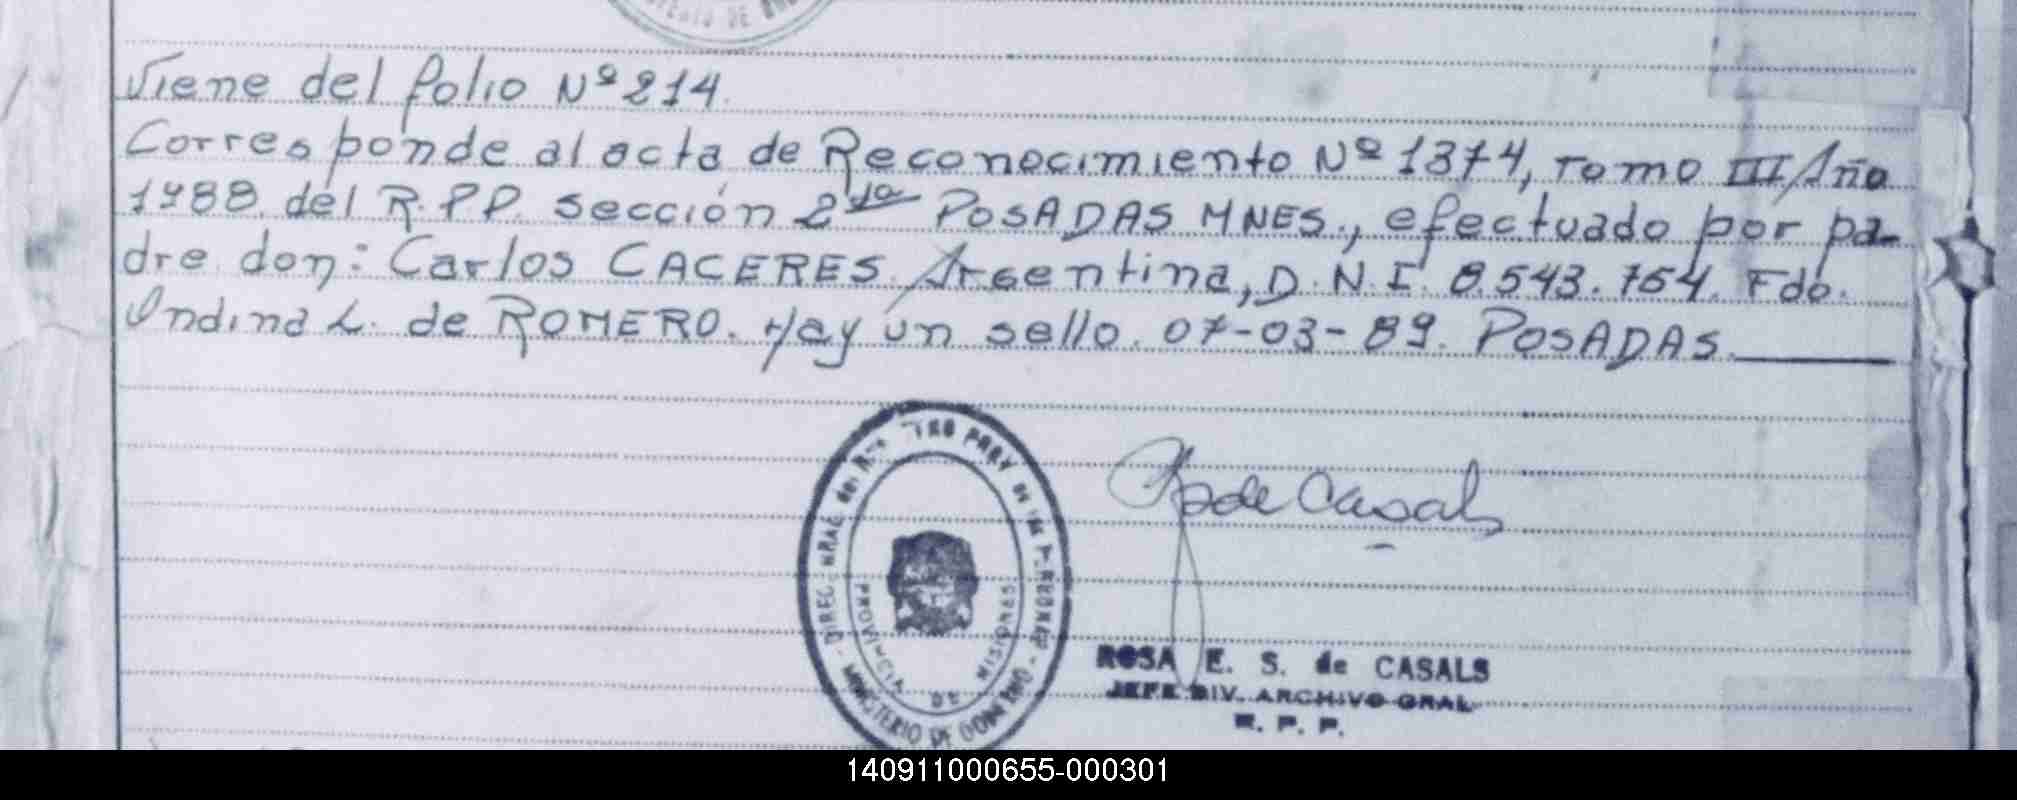 Viene del folio Nº 214.
Corresponde al acta de Reconocimiento Nº 1374, Tomo III/Año
1988. del R.P.P. sección 2da POSADAS MNES., efectuado por pa-
dre don: Carlos CACERES. Argentina, D.N.I. 8.543.764. Fdo.
Undina L. de ROMERO. Hay un sello. 07-03-89. POSADAS.
DIREC. GRAL. DEL REGISTRO PROV. DE LAS PERSONAS
PROVINCIA DE MISIONES
MINISTERIO DE GOBIERNO
de Casals
ROSA E. S. de CASALS
JEFE DIV. ARCHIVO GRAL
R. P. P.
140911000655-000301